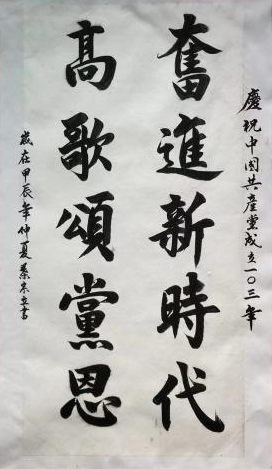 慶祝中國共産黨成立一〇三年
奮進新時代
高歌頌黨恩
歲在甲辰年仲夏書